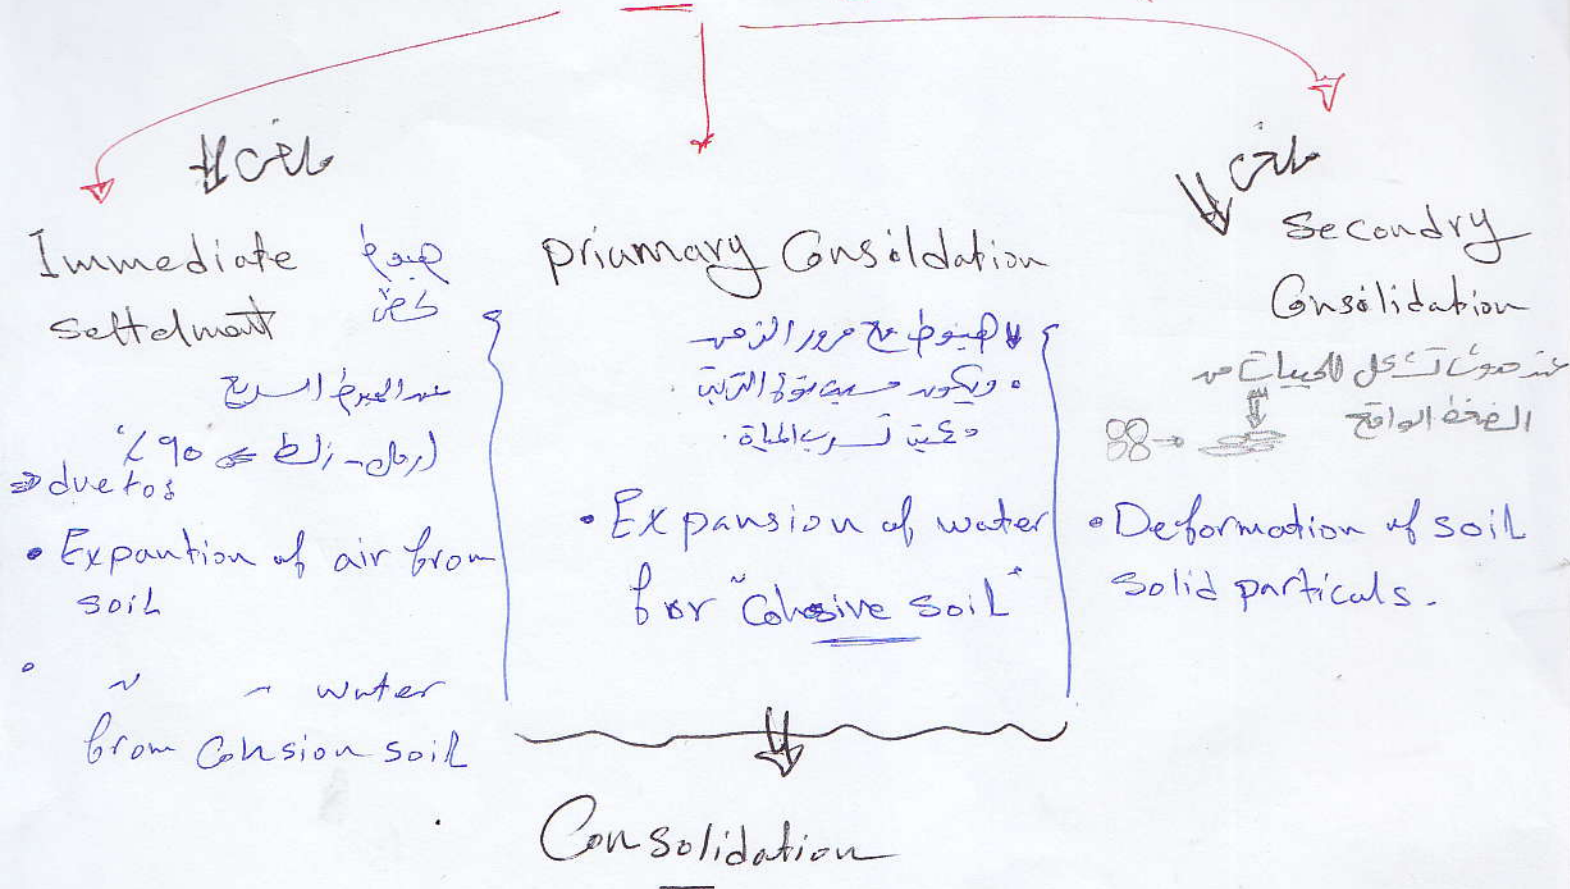 Immediate هبوط
Settelmant لحظى
عند الهبوط السريع
(رمل - زلط ⇐ 90٪
⇒ due to:
• Expantion of air from
soil
• ~ ~ water
from Cohsion soil
priamary Consildation
هبوط مع مرور الزمن
• ويكون بسبب نوع التربة
وكمية تسرب المياة .
• Expansion of water
for "Cohesive soil"
Secondry
Consilidation
عند حدوث تشكل للحبيبات من
الضغط الواقع
• Deformation of soil
solid particals.
Consolidation